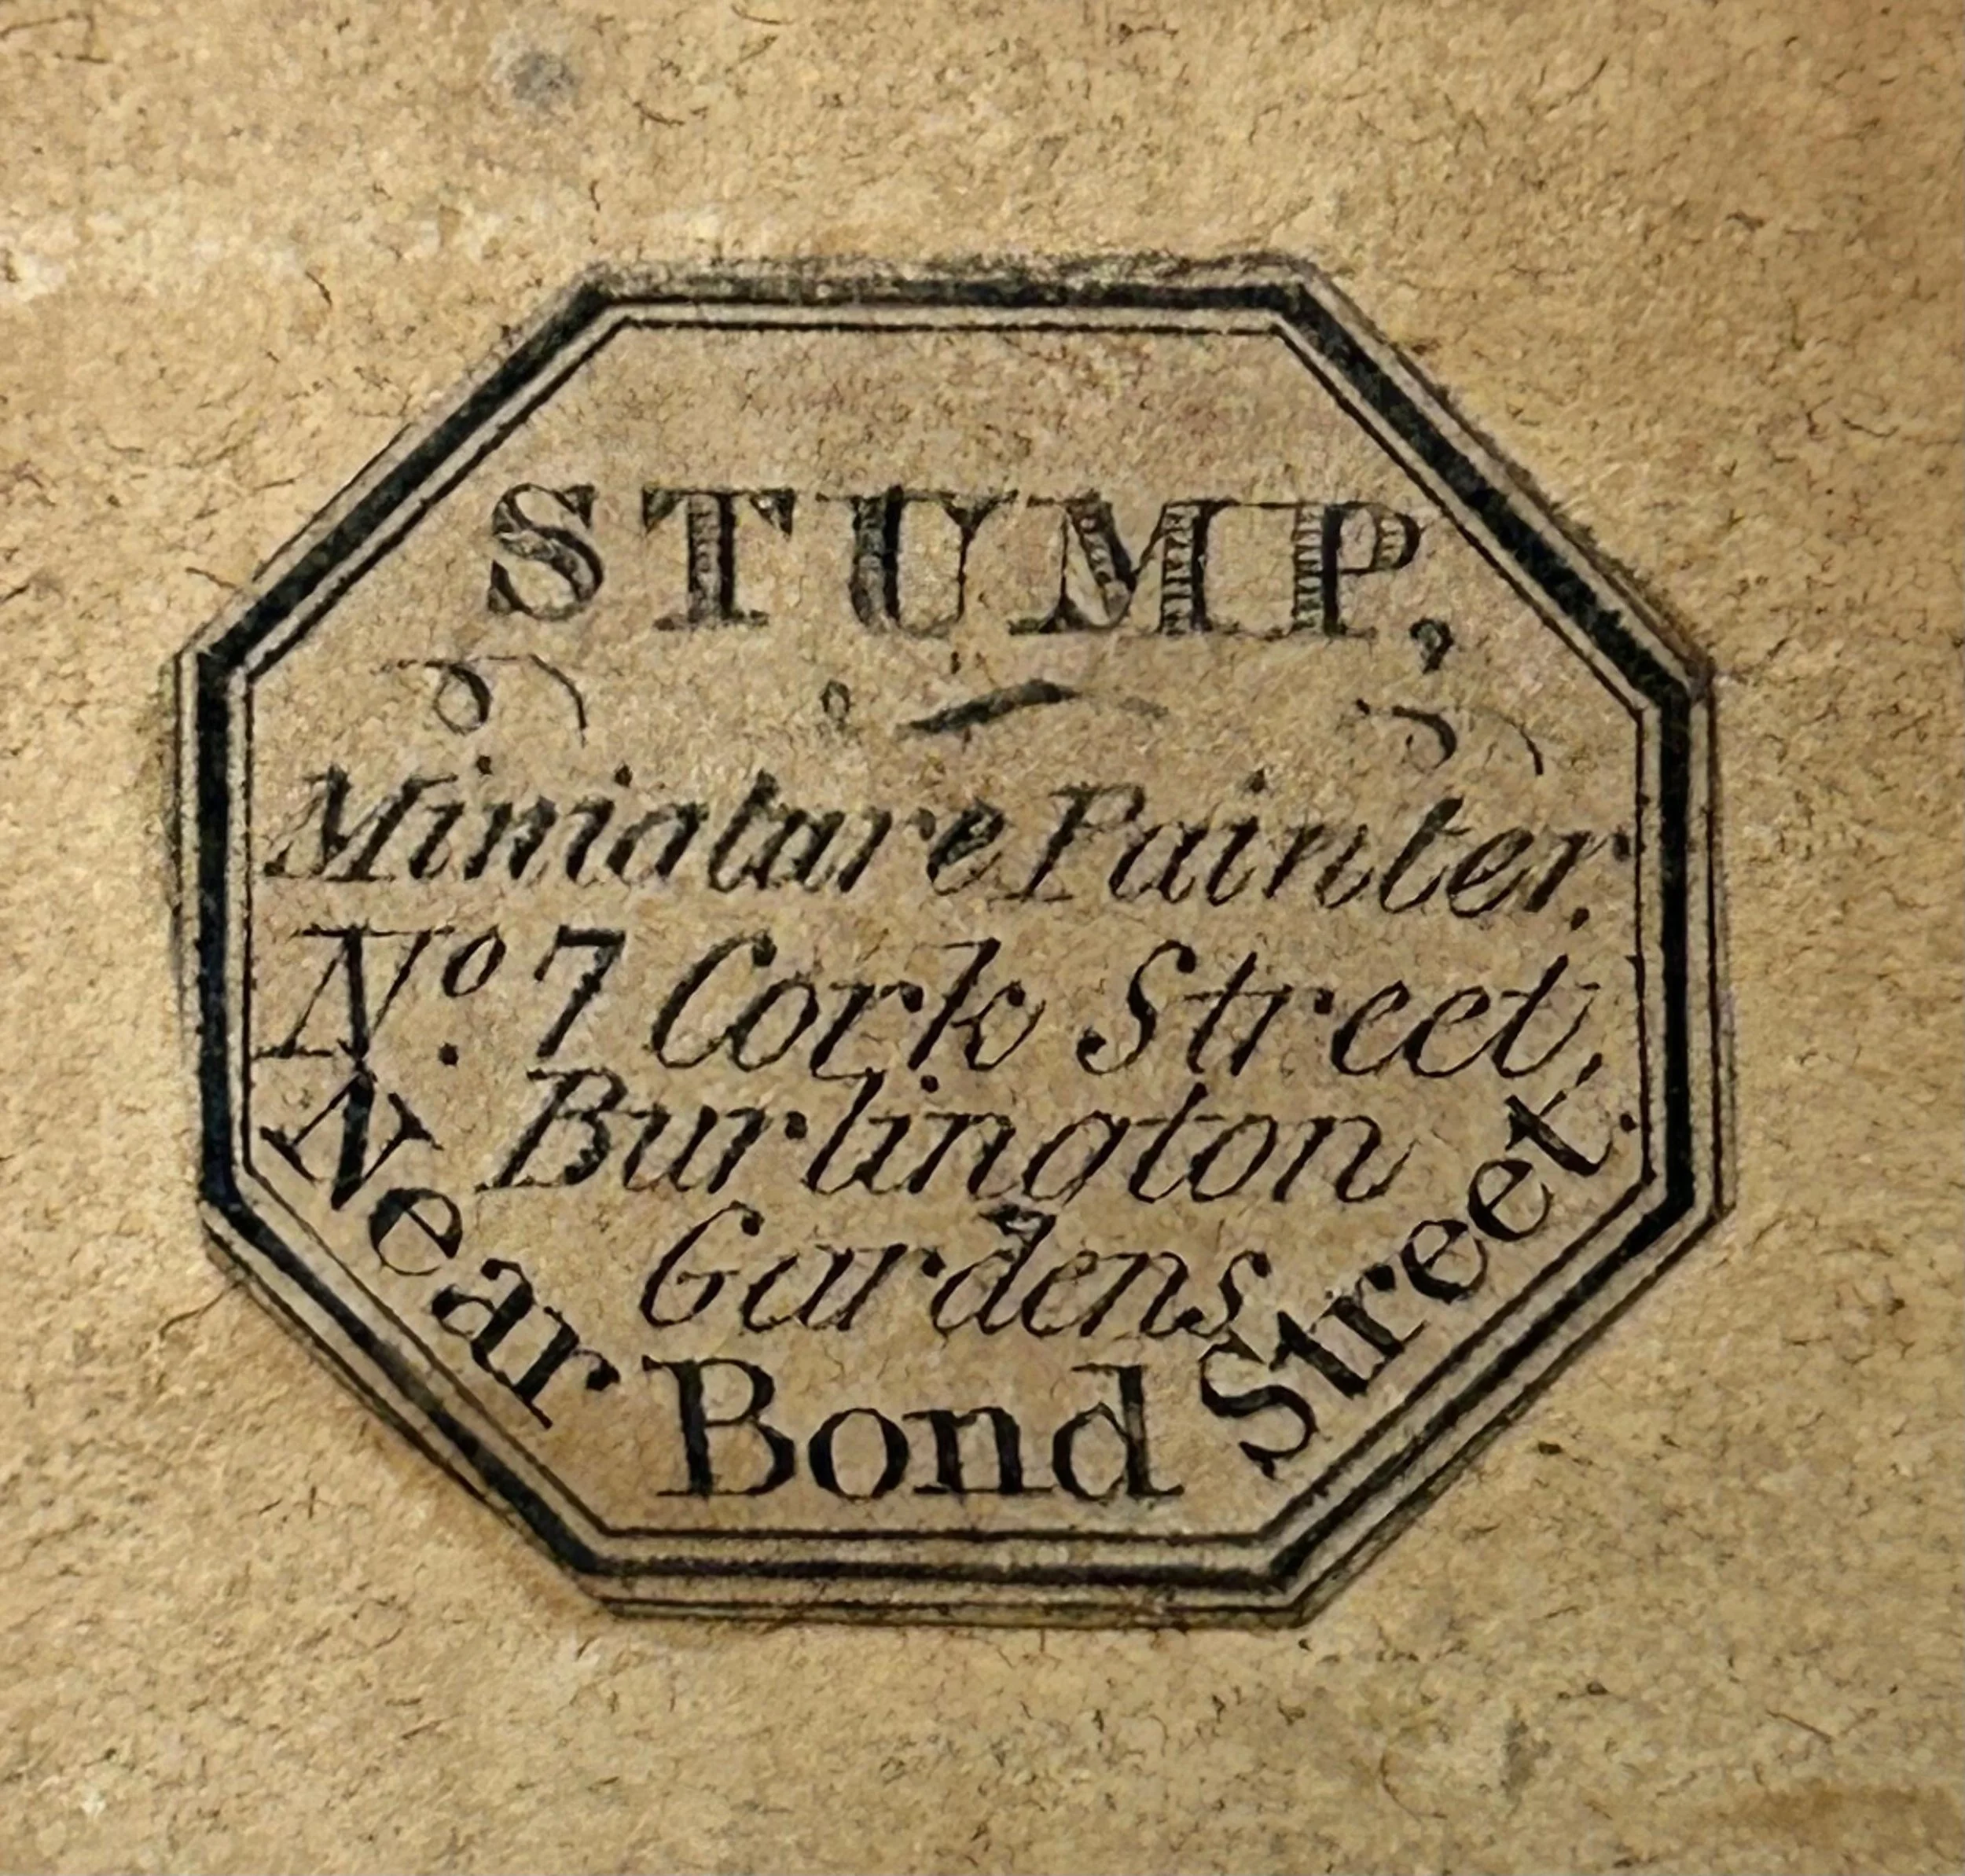 STUMP,
Miniature Painter.
No. 7 Cork Street,
Burlington
Gardens
Near Bond Street.